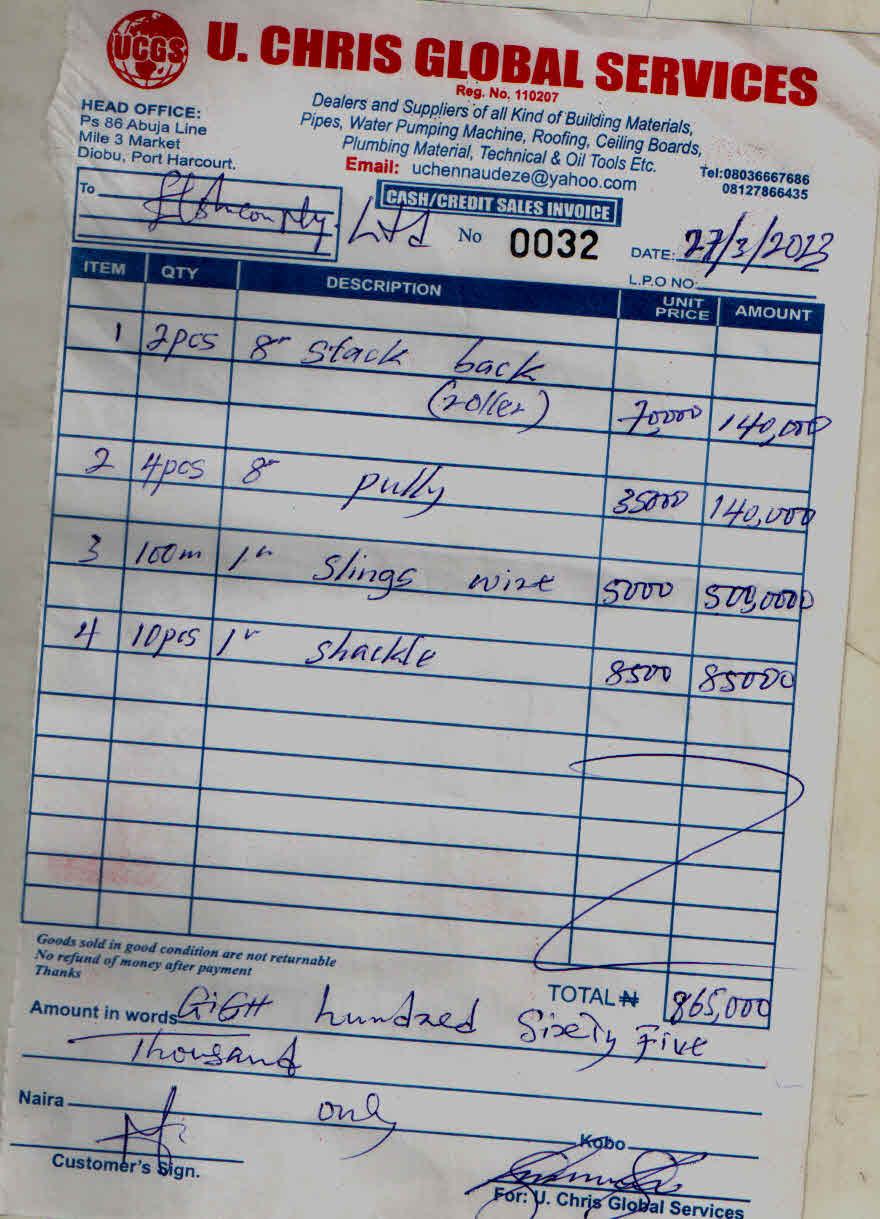 UCGS
U. CHRIS GLOBAL SERVICES
Reg. No. 110207
HEAD OFFICE:
Ps 86 Abuja Line
Mile 3 Market
Diobu, Port Harcourt.
Dealers and Suppliers of all Kind of Building Materials,
Pipes, Water Pumping Machine, Roofing, Ceiling Boards,
Plumbing Material, Technical & Oil Tools Etc.
Email: uchennaudeze@yahoo.com
Tel:08036667686
08127866435
To Ltd
CASH/CREDIT SALES INVOICE
No 0032
DATE: 27/3/2023
L.P.O NO:
ITEM QTY DESCRIPTION UNIT PRICE AMOUNT
1 2pcs 8" Stack back
(roller) 70,000 140,000
2 4pcs 8"
pully 35000 140,000
3 100m 1"
Slings wire 5000 500,0000
4 10pcs 1"
shackle 8500 85000
Goods sold in good condition are not returnable
No refund of money after payment
Thanks
TOTAL ₦ 865,000
Amount in words Eight hundred Sixety Five
Thousand
Naira only Kobo
Customer's Sign.
For: U. Chris Global Services